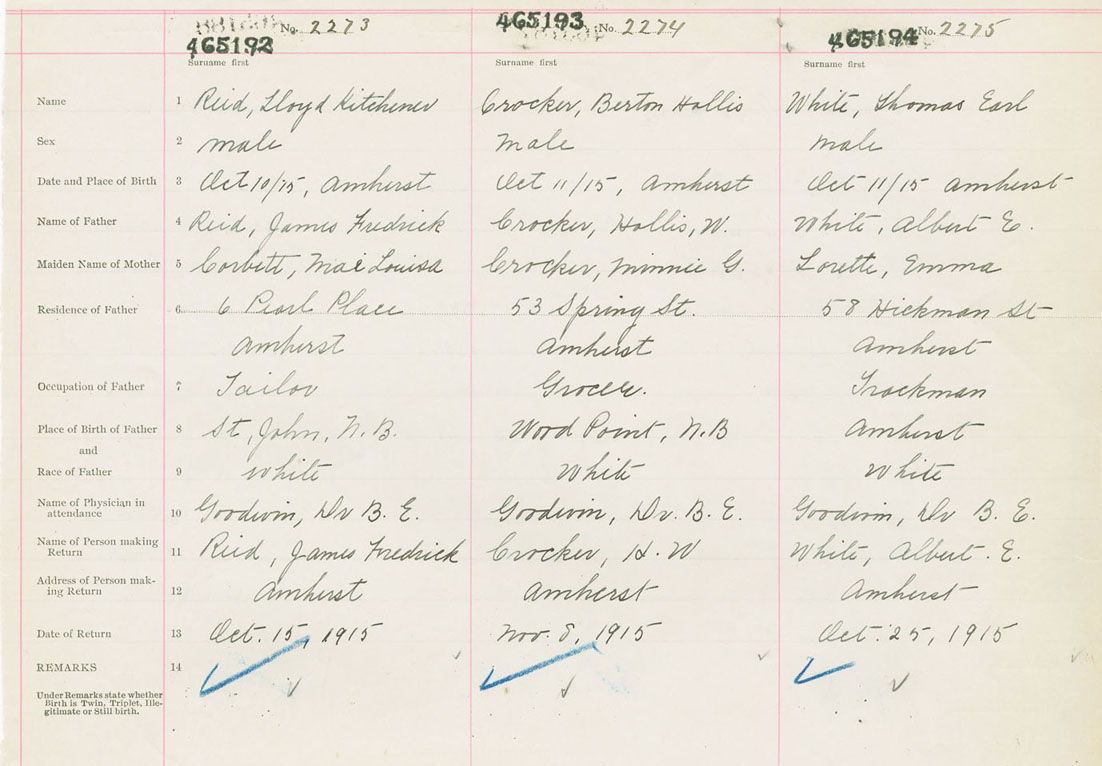 No. 2273 465193 No. 2274 No. 2275
465192 465194
Surname first Surname first Surname first
Name 1 Reid, Lloyd Kitchener Crocker, Berton Hollis White, Thomas Earl
Sex 2 male Male male
Date and Place of Birth 3 Oct 10/15, Amherst Oct 11/15, Amherst Oct 11/15 Amherst
Name of Father 4 Reid, James Fredrick Crocker, Hollis, W. White, Albert E.
Maiden Name of Mother 5 Corbett, Mae Louisa Crocker, Minnie G. Lorette, Emma
Residence of Father 6 6 Pearl Place 53 Spring St. 58 Hickman St
Amherst Amherst Amherst
Occupation of Father 7 Tailor Grocer. Trackman
Place of Birth of Father 8 St, John, N.B. Wood Point, N.B Amherst
and
Race of Father 9 White White White
Name of Physician in
attendance 10 Goodwin, Dr B. E. Goodwin, Dr. B. E. Goodwin, Dr B. E.
Name of Person making
Return 11 Reid, James Fredrick Crocker, H. W White, Albert. E.
Address of Person mak-
ing Return 12 Amherst Amherst Amherst
Date of Return 13 Oct. 15, 1915 Nov. 8, 1915 Oct. 25, 1915
REMARKS 14
Under Remarks state whether
Birth is Twin, Triplet, Ille-
gitimate or Still birth.